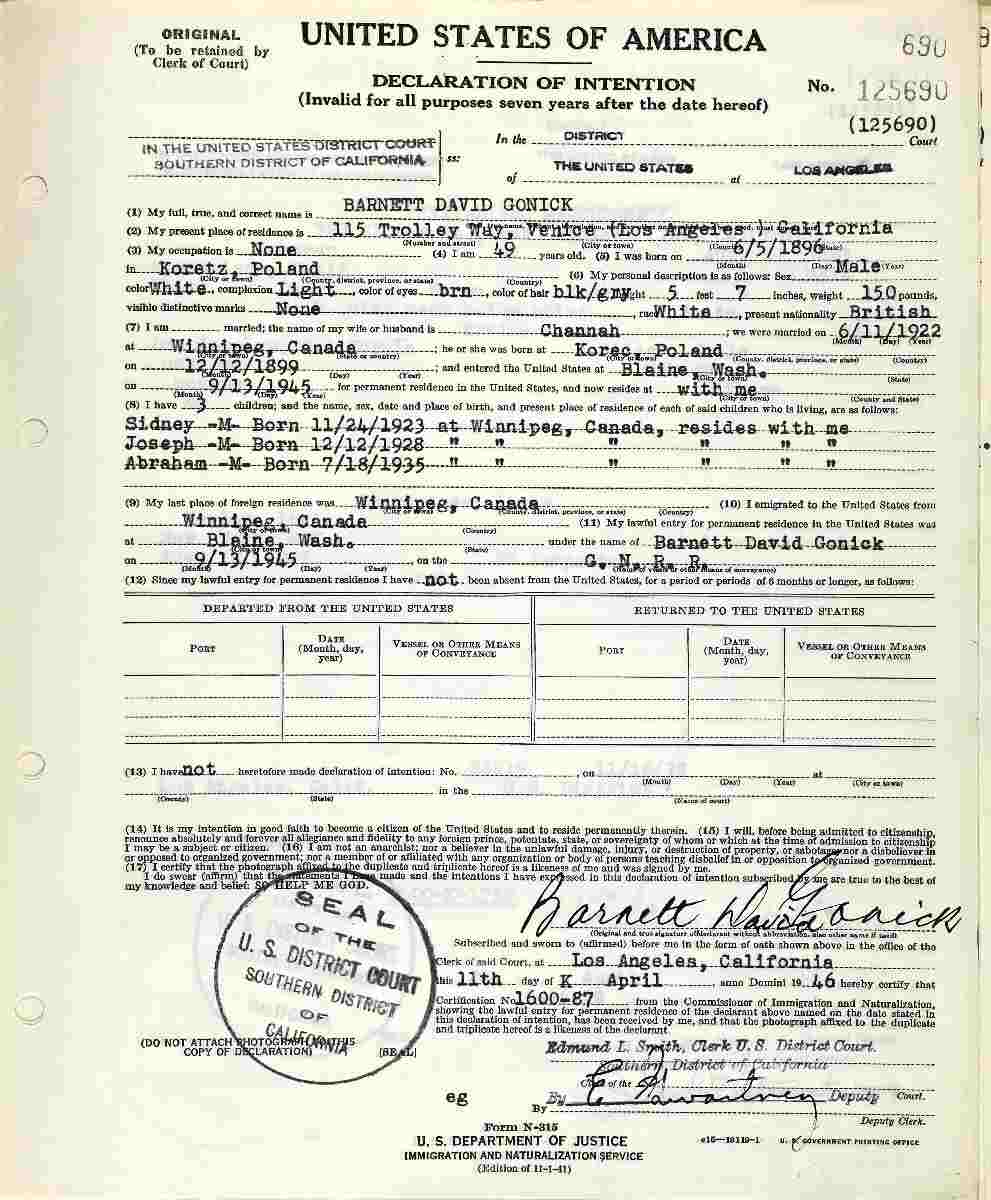 ORIGINAL
(To be retained by
Clerk of Court)
UNITED STATES OF AMERICA
690
DECLARATION OF INTENTION
(Invalid for all purposes seven years after the date hereof)
No. 125690
(125690)
IN THE UNITED STATES DISTRICT COURT
SOUTHERN DISTRICT OF CALIFORNIA
ss:
In the DISTRICT Court
of THE UNITED STATES at LOS ANGELES
(1) My full, true, and correct name is BARNETT DAVID GONICK
(2) My present place of residence is 115 Trolley Way, Venice (Los Angeles) California
(Number and street) (City or town)
(3) My occupation is None (4) I am 49 years old. (5) I was born on 6/5/1896
(Month) (Day) (Year)
in Koretz, Poland (6) My personal description is as follows: Sex Male
(City or town) (County, district, province, or state) (Country)
color White, complexion Light, color of eyes brn, color of hair blk/gry 5 feet 7 inches, weight 150 pounds,
visible distinctive marks None, race White, present nationality British
(7) I am married; the name of my wife or husband is Channah; we were married on 6/11/1922
(Month) (Day) (Year)
at Winnipeg, Canada; he or she was born at Korec, Poland
(City or town) (State or country) (City or town) (County, district, province, or state) (Country)
on 12/12/1899; and entered the United States at Blaine, Wash.
(Month) (Day) (Year) (City or town) (State)
on 9/13/1945 for permanent residence in the United States, and now resides at with me
(Month) (Day) (Year) (City or town) (County and State)
(8) I have 3 children; and the name, sex, date and place of birth, and present place of residence of each of said children who is living, are as follows:
Sidney -M- Born 11/24/1923 at Winnipeg, Canada, resides with me
Joseph -M- Born 12/12/1928 " " " " " "
Abraham -M- Born 7/18/1935 " " " " " "
(9) My last place of foreign residence was Winnipeg, Canada (10) I emigrated to the United States from
(City or town) (County, district, province, or state) (Country)
Winnipeg, Canada (11) My lawful entry for permanent residence in the United States was
(City or town) (Country)
at Blaine, Wash. under the name of Barnett David Gonick
(City or town) (State)
on 9/13/1945 on the G. N. R. R.
(Month) (Day) (Year) (Name of vessel or other means of conveyance)
(12) Since my lawful entry for permanent residence I have not been absent from the United States, for a period or periods of 6 months or longer, as follows:
DEPARTED FROM THE UNITED STATES RETURNED TO THE UNITED STATES
PORT DATE (Month, day, year) VESSEL OR OTHER MEANS OF CONVEYANCE PORT DATE (Month, day, year) VESSEL OR OTHER MEANS OF CONVEYANCE
(13) I have not heretofore made declaration of intention: No. , on at
(Month) (Day) (Year) (City or town)
in the
(County) (State) (Name of court)
(14) It is my intention in good faith to become a citizen of the United States and to reside permanently therein. (15) I will, before being admitted to citizenship,
renounce absolutely and forever all allegiance and fidelity to any foreign prince, potentate, state, or sovereignty of whom or which at the time of admission to citizenship
I may be a subject or citizen. (16) I am not an anarchist; nor a believer in the unlawful damage, injury, or destruction of property, or sabotage; nor a disbeliever in
or opposed to organized government; nor a member of or affiliated with any organization or body of persons teaching disbelief in or opposition to organized government.
(17) I certify that the photograph affixed to the duplicate and triplicate hereof is a likeness of me and was signed by me.
I do swear (affirm) that the statements I have made and the intentions I have expressed in this declaration of intention subscribed by me are true to the best of
my knowledge and belief: SO HELP ME GOD.
Barnett David Gonick
(Original and true signature of declarant without abbreviation, also other name if used)
Subscribed and sworn to (affirmed) before me in the form of oath shown above in the office of the
Clerk of said Court, at Los Angeles, California
this 11th day of K April anno Domini 19 46 hereby certify that
Certification No 1600-87 from the Commissioner of Immigration and Naturalization,
showing the lawful entry for permanent residence of the declarant above named on the date stated in
this declaration of intention, has been received by me, and that the photograph affixed to the duplicate
and triplicate hereof is a likeness of the declarant.
SEAL
OF THE
U. S. DISTRICT COURT
SOUTHERN DISTRICT
OF
CALIFORNIA
(DO NOT ATTACH PHOTOGRAPH TO THIS
COPY OF DECLARATION)
[SEAL]
Edmund L. Smith, Clerk U. S. District Court.
Southern District of California
Clerk of the
By Deputy Court.
eg
By
Deputy Clerk.
Form N-315
U. S. DEPARTMENT OF JUSTICE
IMMIGRATION AND NATURALIZATION SERVICE
(Edition of 11-1-41)
16—18119-1 U. S. GOVERNMENT PRINTING OFFICE